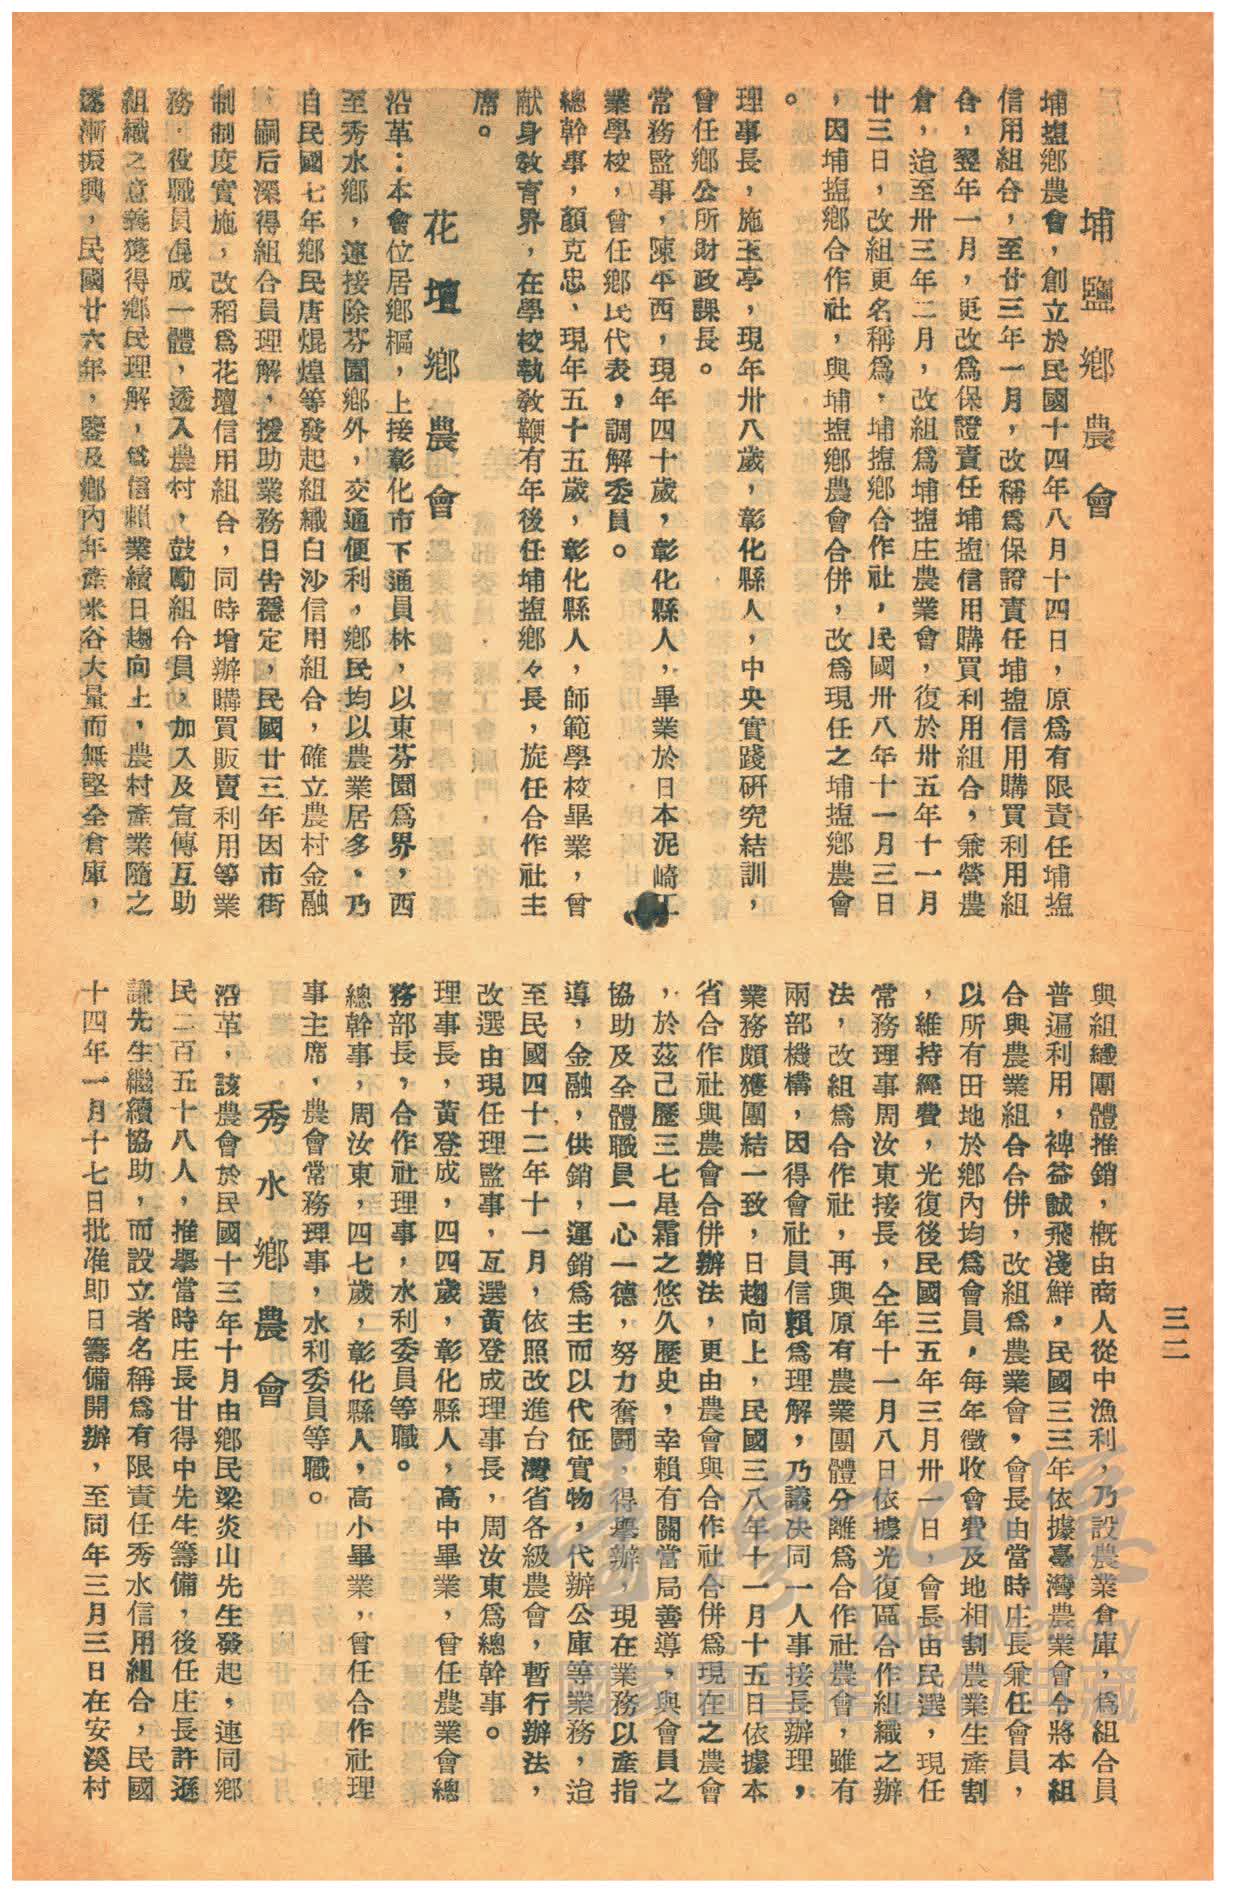 埔鹽鄉農會
埔塩鄉農會，創立於民國十四年八月十四日，原爲有限責任埔塩
信用組合，至廿三年一月，改稱爲保證責任埔塩信用購買利用組
合，翌年一月，更改爲保證責任埔塩信用購買利用組合，兼營農
倉，迨至卅三年二月，改組爲埔塩庄農業會，復於卅五年十一月
廿三日，改組更名稱爲，埔塩鄉合作社，民國卅八年十一月三日
，因埔塩鄉合作社，與埔塩鄉農會合併，改爲現任之埔塩鄉農會
。
理事長，施玉亭，現年卅八歲，彰化縣人，中央實踐研究結訓，
曾任鄉公所財政課長。
常務監事，陳平西，現年四十歲，彰化縣人，畢業於日本泥崎工
業學校，曾任鄉民代表，調解委員。
總幹事，顏克忠，現年五十五歲，彰化縣人，師範學校畢業，曾
献身敎育界，在學校執敎鞭有年後任埔塩鄉々長，旋任合作社主
席。
花壇鄉農會
沿革：本會位居鄉樞，上接彰化市下通員林，以東芬園爲界，西
至秀水鄉，連接除芬園鄉外，交通便利，鄉民均以農業居多，乃
自民國七年鄉民唐焜煌等發起組織白沙信用組合，確立農村金融
，嗣后深得組合員理解，援助業務日告穩定，民國廿三年因市街
制制度實施，改稻爲花壇信用組合，同時增辦購買販賣利用等業
務，役職員混成一體，透入農村，鼓勵組合員，加入及宣傳互助
組織之意義獲得鄉民理解，爲信賴業績日趨向上，農村產業隨之
逐漸振興，民國廿六年，鑒及鄉內年產米谷大量而無堅全倉庫，
與組織團體推銷，概由商人從中漁利，乃設農業倉庫，爲組合員
普遍利用，裨益誠飛淺鮮，民國三三年依據臺灣農業會令將本組
合與農業組合合併，改組爲農業會，會長由當時庄長兼任會員，
以所有田地於鄉內均爲會員，每年徵收會費及地相割農業生產割
，維持經費，光復後民國三五年三月卅一日，會長由民選，現任
常務理事周汝東接長，仝年十一月八日依據光復區合作組織之辦
法，改組爲合作社，再與原有農業團體分離爲合作社農會，雖有
兩部機構，因得會社員信賴爲理解，乃議決同一人事接長辦理，
業務頗獲團結一致，日趨向上，民國三八年十一月十五日依據本
省合作社與農會合併辦法，更由農會與合作社合併爲現在之農會
，於茲己歷三七星霜之悠久歷史，幸賴有關當局善導，與會員之
協助及全體職員一心一德，努力奮鬪，得舉辦，現在業務以產指
導，金融，供銷，運銷爲主而以代征實物，代辦公庫等業務，迨
至民國四十二年十一月，依照改進台灣省各級農會，暫行辦法，
改選由現任理監事，互選黃登成理事長，周汝東爲總幹事。
理事長，黃登成，四四歲，彰化縣人，高中畢業，曾任農業會總
務部長，合作社理事，水利委員等職。
總幹事，周汝東，四七歲，彰化縣人，高小畢業，曾任合作社理
事主席，農會常務理事，水利委員等職。
秀水鄉農會
沿革，該農會於民國十三年十月由鄉民梁炎山先生發起，連同鄉
民二百五十八人，推舉當時庄長廿得中先生籌備，後任庄長許遜
謙先生繼續協助，而設立者名稱爲有限責任秀水信用組合，民國
十四年一月十七日批准即日籌備開辦，至同年三月三日在安溪村
三二
臺灣記憶
Taiwan Memory
國家圖書館數位典藏